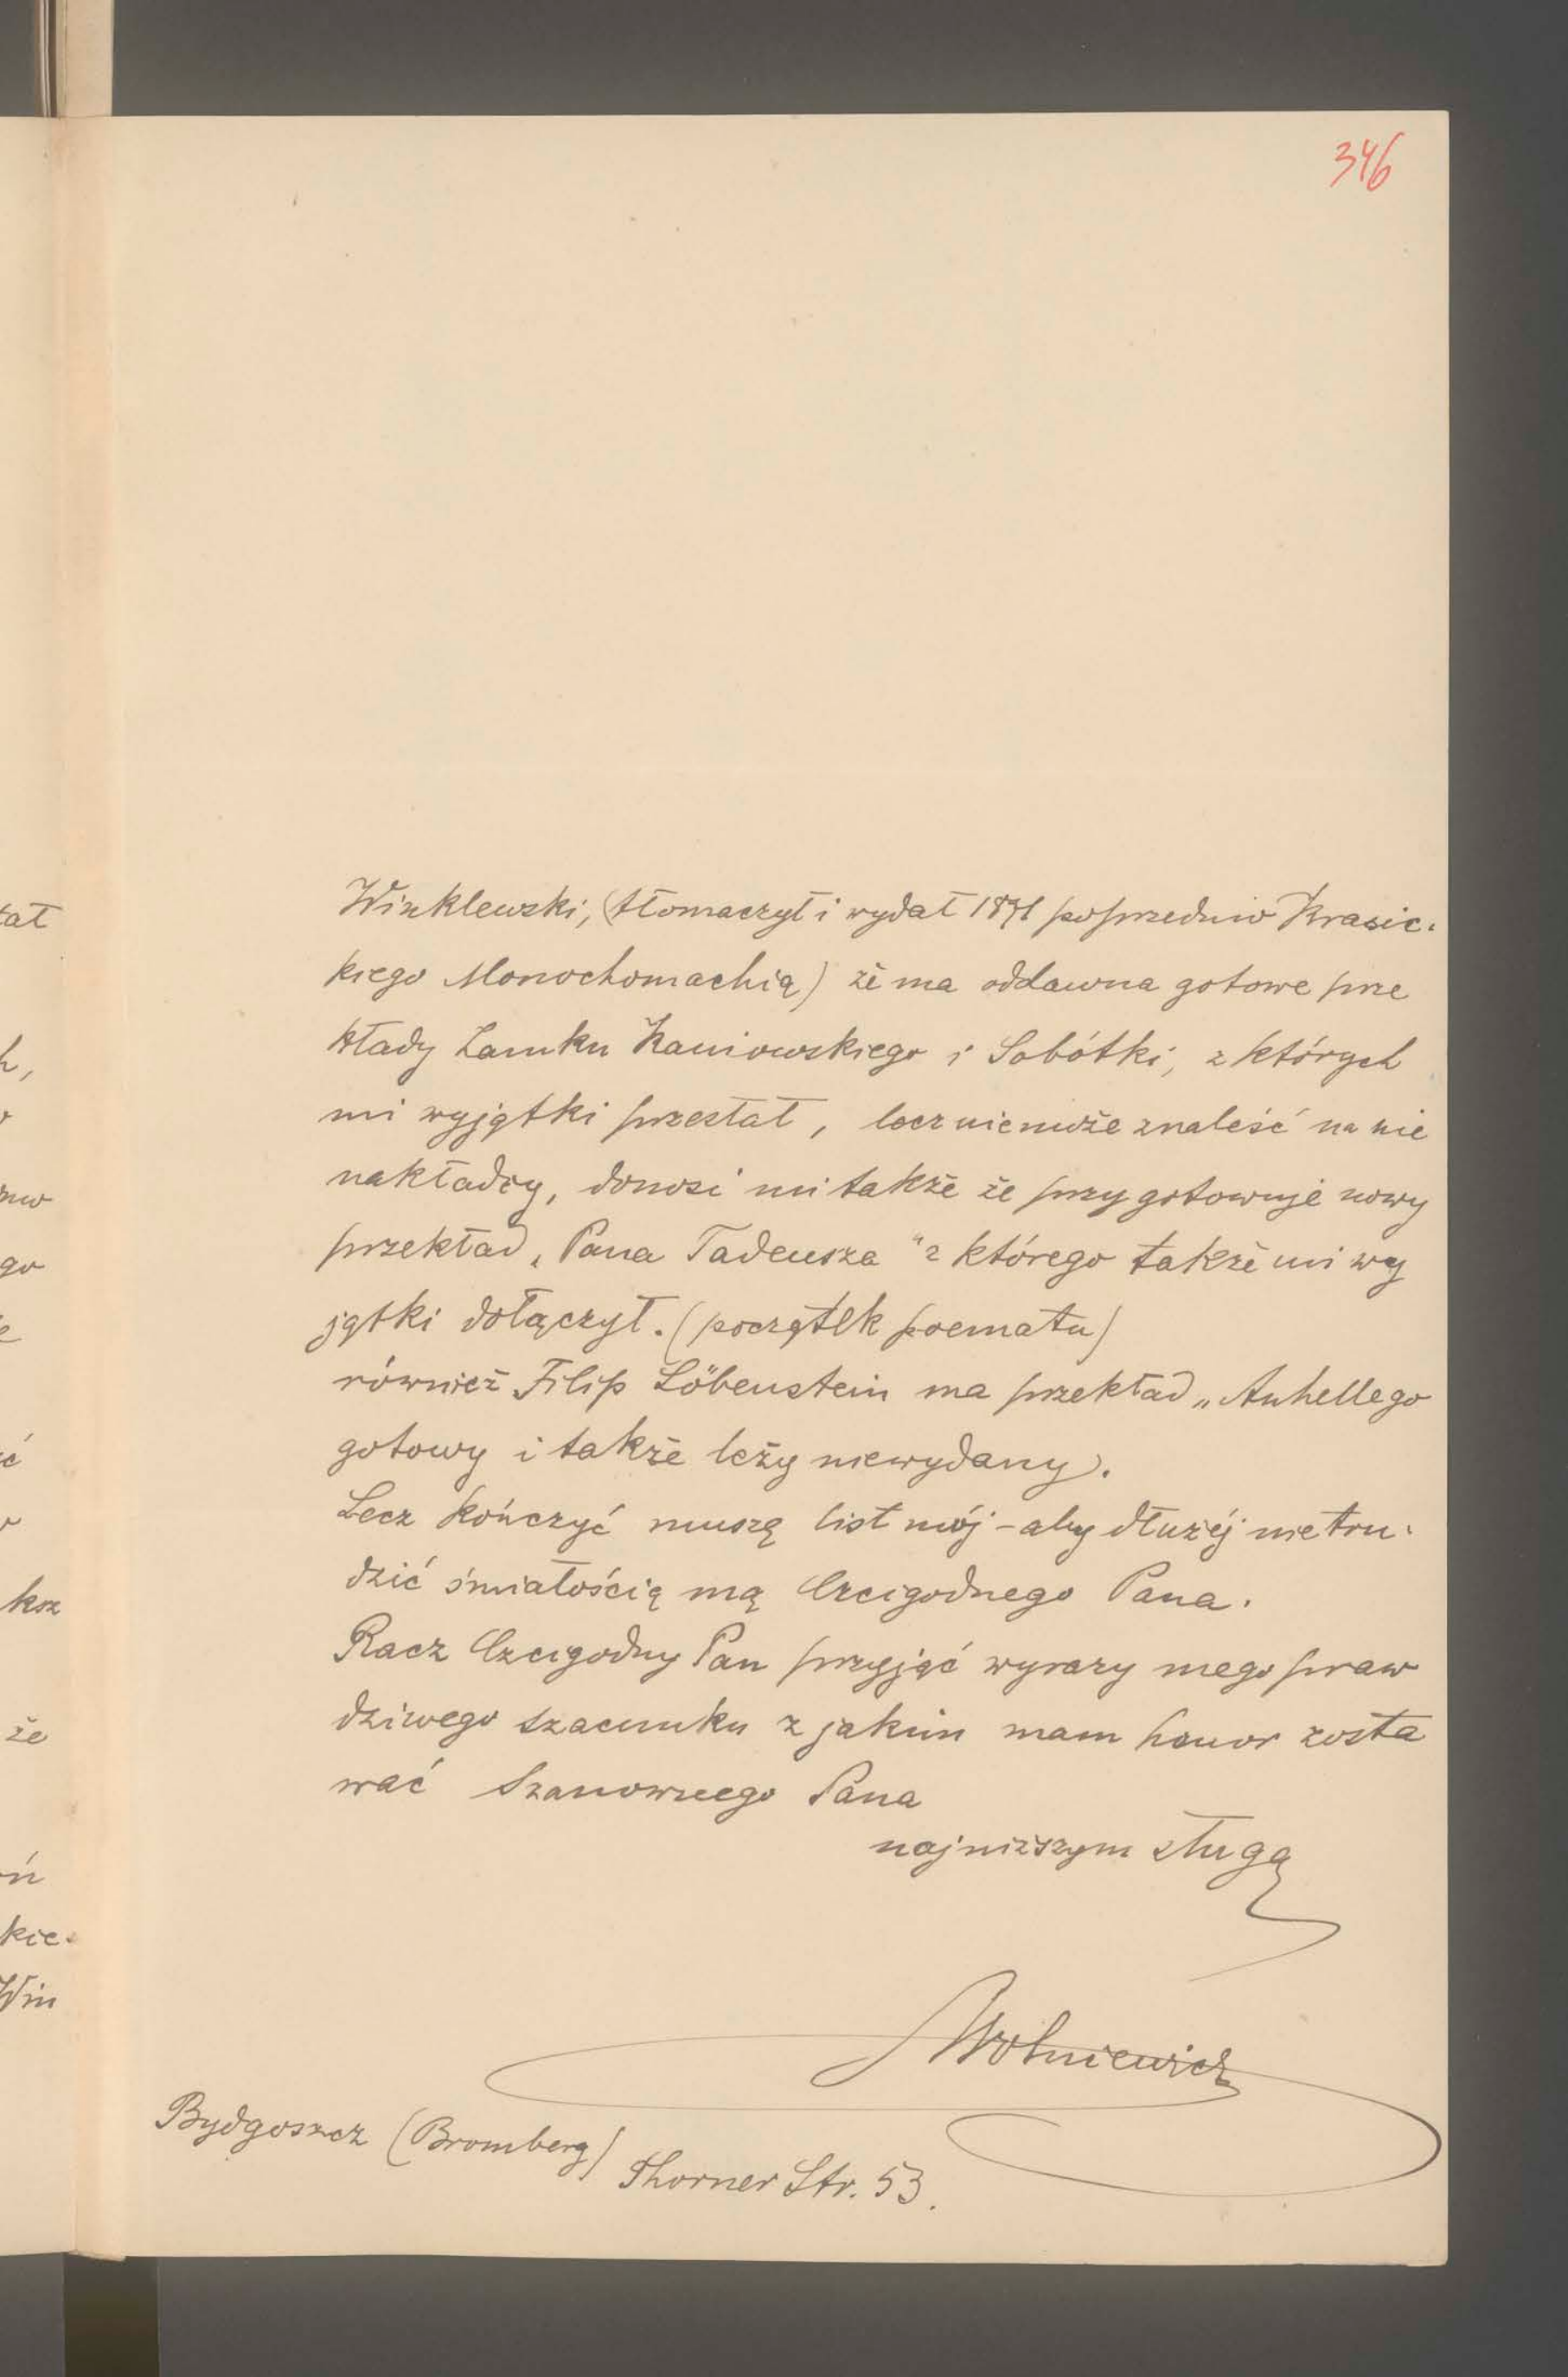 346
Winklewski, (tłomaczył i wydał 1871 poprzednio Krasic-
kiego Monochomachią) że ma oddawna gotowe prze
kłady Zamku Kaniowskiego i Sobótki, z których
mi wyjątki przesłał, lecz niemoże znaleść na nie
nakładcy, donosi mi także że przygotowuje nowy
przekład „Pana Tadeusza" z którego także mi wy
jątki dołączył. (początek poematu)
również Filip Löbenstein ma przekład „Anhellego
gotowy i także leży niewydany.
Lecz kończyć muszę list mój – aby dłużéj nietru-
dzić śmiałością mą Czcigodnego Pana.
Racz Czcigodny Pan przyjąć wyrazy mego praw
dziwego szacunku z jakim mam honor zosta
wać Szanownego Pana
najniższym sługą
Wolniewicz
Bydgoszcz (Bromberg)
Thorner Str. 53.
tat
h,
go
ć
ksz
że
ń
kie-
Win